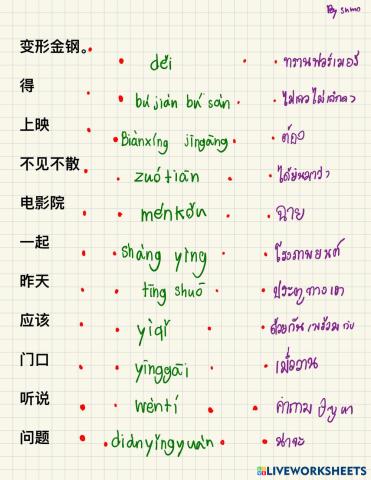 By shmo
变形金钢。 děi ทรานฟอร์เมอร์
得 bú jiàn bú sàn ไม่เจอไม่เลิกลา
上映 Biànxíng jīngāng ต้อง
不见不散 zuótiān ได้ยินมาว่า
电影院 ménkǒu ฉาย
一起 shàng yìng โรงภาพยนต์
昨天 tīng shuō ประตูทางเอา
应该 yìqǐ ด้วยกัน/พร้อมกับ
门口 yīnggāi เมื่อวาน
听说 wèntí คำถาม ปัญหา
问题 diànyǐngyuàn น่าจะ
LIVEWORKSHEETS